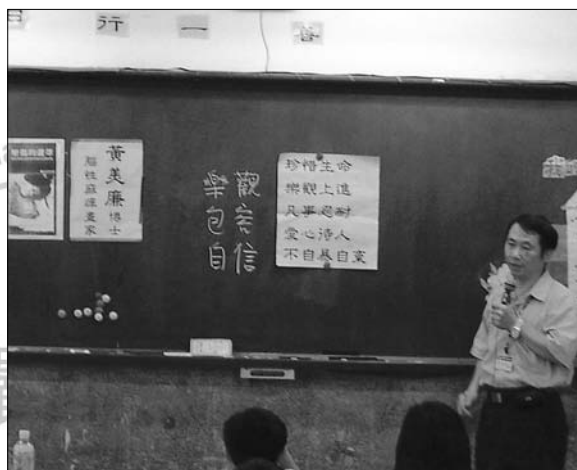 日行一善
黃美廉博士
腦性麻痺畫家
樂觀
包容
自信
珍惜生命
樂觀上進
凡事忍耐
愛心待人
不自暴自棄